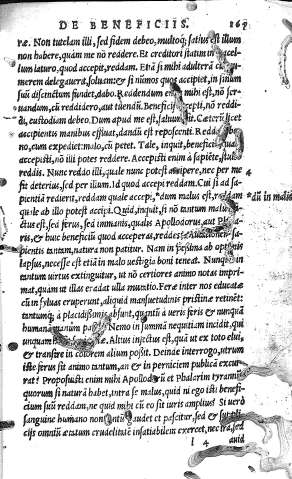 DE BENEFICIIS.
ræ. Non tutelam illi, sed fidem debeo, multoq; satius est illum
non habere, quàm me nō reddere. Et creditori statim in
luturo, quod accepit, reddam. Etiā si mihi adulterā
merem delegauerit, soluam: & si nūmos quos accipiet, in sinum
suū discinctum fundet, dabo. Reddendum enim mihi est, nō ser-
uandum, cū reddidero, aut tuendū. Beneficij accepti, nō reddi-
ti, custodiam debeo. Dum apud me est, saluum sit. Cæterū licet
accipientis manibus effluat, dandū est reposcenti. Reddā
no, cum expediet: malo, cū petet. Tale, inquit, beneficiū
accepisti, nō illi potes reddere. Accepisti enim à sapiēte, stulto
reddis. Nunc reddo illi, quale nunc potest accipere, nec per me
fit deterius, sed per illum. Id quod accepi reddam. Cui si ad sa-
pientiā redierit, reddam quale accepi, *dum malus est, reddam
quale ab illo potest accipi. Quid, inquit, si nō tantum malus
ctus est, sed ferus, sed immanis, qualis Apollodorus, aut Phala-
ris, & huic beneficiū quod acceperas, reddes?
pientis tantum, natura non patitur. Nam in pessima ab optimis
lapsus, necesse est etiā in malo uestigia boni teneat. Nunquam
tantum uirtus extinguitur, ut nō certiores animo notas impri-
mat, quàm ut illas eradat ulla mutatio. Feræ inter nos educatæ
cū in syluas eruperunt, aliquid mansuetudinis pristinæ retinēt:
tantumq; à placidissimis absunt, quantū à ueris feris & nunquā
humanā manum passis. Nemo in summā nequitiam incidit, qui
unquam Altius infectus est, quā ut ex toto elui,
& transire in colorem alium possit. Deinde interrogo, utrum
iste ferus sit animo tantum, an & in perniciem publicā excur-
rat? Proposuisti enim mihi Apollodorū et Phalarim tyrannū,
quorum si naturā habet, intra se malus, quid ni ego isti benefi-
cium suū reddam, ne quid mihi cū eo sit iuris amplius? Si uerò
sanguine humano non tantū gaudet et pascitur, sed & suppli-
cijs omniū ætatum crudelitatē insatiabilem exercet, nec ira, sed
l 4 auid
*dū in malo